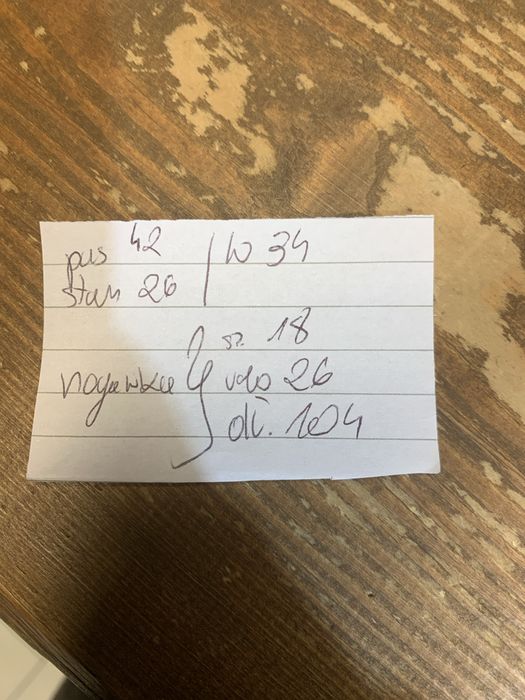 pas 42 | W 34
stan 26
sz. 18
nogawka { udo 26
dł. 104